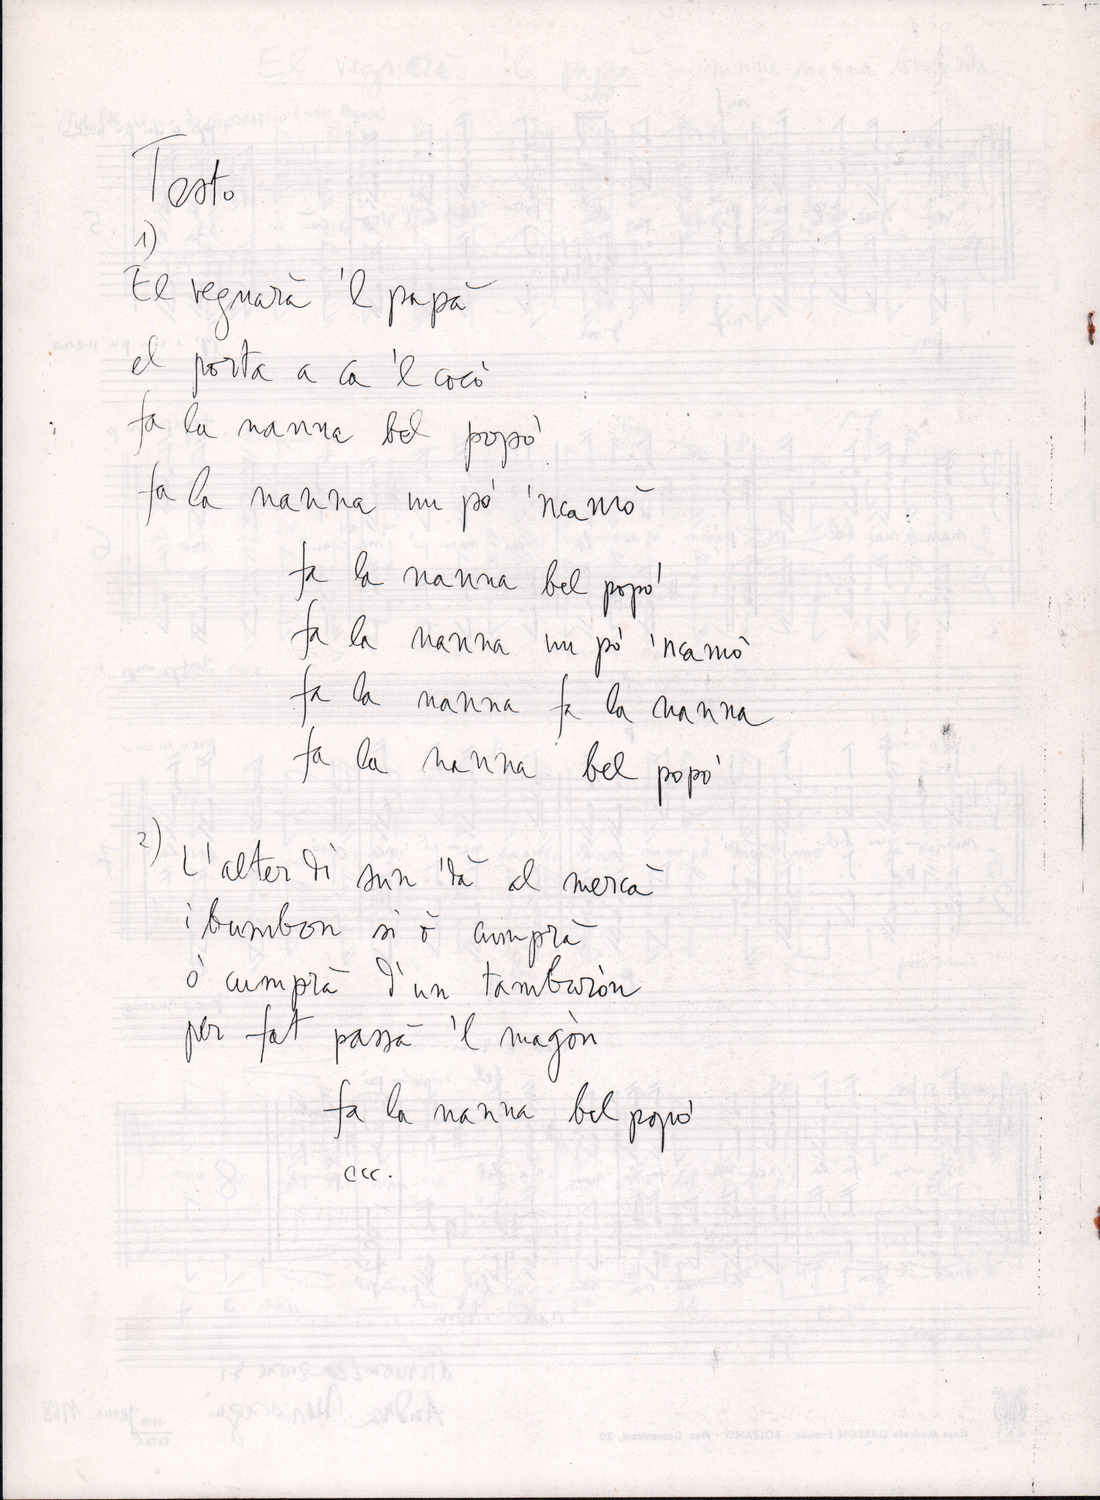 Testo
1)
El vegnarà 'l papà
el porta a ca 'l cocò
fa la nanna bel popò
fa la nanna un pò 'ncamò
fa la nanna bel popò
fa la nanna un pò 'ncamò
fa la nanna fa la nanna
fa la nanna bel popò
2)
L'alter dì sun 'dà al mercà
i bumbon si ò cumprà
ò cumprà d'un tamburòn
per fat passà 'l magòn
fa la nanna bel popò
ecc.